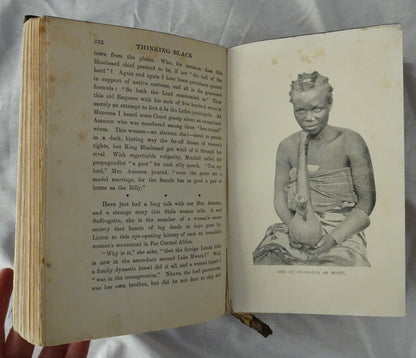 232 THINKING BLACK
town from the plains. Who, for instance, does this
Bluebeard chief pretend to be, if not "the tail of the
herd"? Again and again I hear beast-precedents quoted
in support of native customs, and all in the grotesque
formula: "So hath the Lord commanded it." Thus
this old Emperor with his mob of five hundred wives is
merely an attempt to live à la the Lufira quadrupeds. At
Munema I heard some Court gossip about an exceptional
Amazon who was numbered among those "hen-coped"
wives. This woman—no shatters
in a dark, hinting way the far-off dream of woman's
rights, but King Bluebeard got wind of it through her
rival. With regrettable vulgarity, Mushidi called the
propagandist "a goat" for such silly speech. "Yes, my
lord," Mrs. Amazon pouted, "even the goats are a
model marriage, for the female has as good a pair of
horns as the Billy."
Have just had a long talk with our Mrs. Amazon,
and a strange story this Shila woman tells. A real
Suffragette, she is the member of a women's secret
society that hoards of big deeds in days gone by.
Listen to this eye-opening history of such an incredible
women's movement in Far Central Africa.
"Why is it," she asks, "that the foreign Lunda tribe
is now in the ascendant around Lake Mweru? Why,
a family dynastic brawl did it all, and a woman (again!)
was in the transgression." Nkuva, the lord permanent,
was her own brother, but did he not dare to slay
ONE OF MUSHIDI'S 500 WIVES.